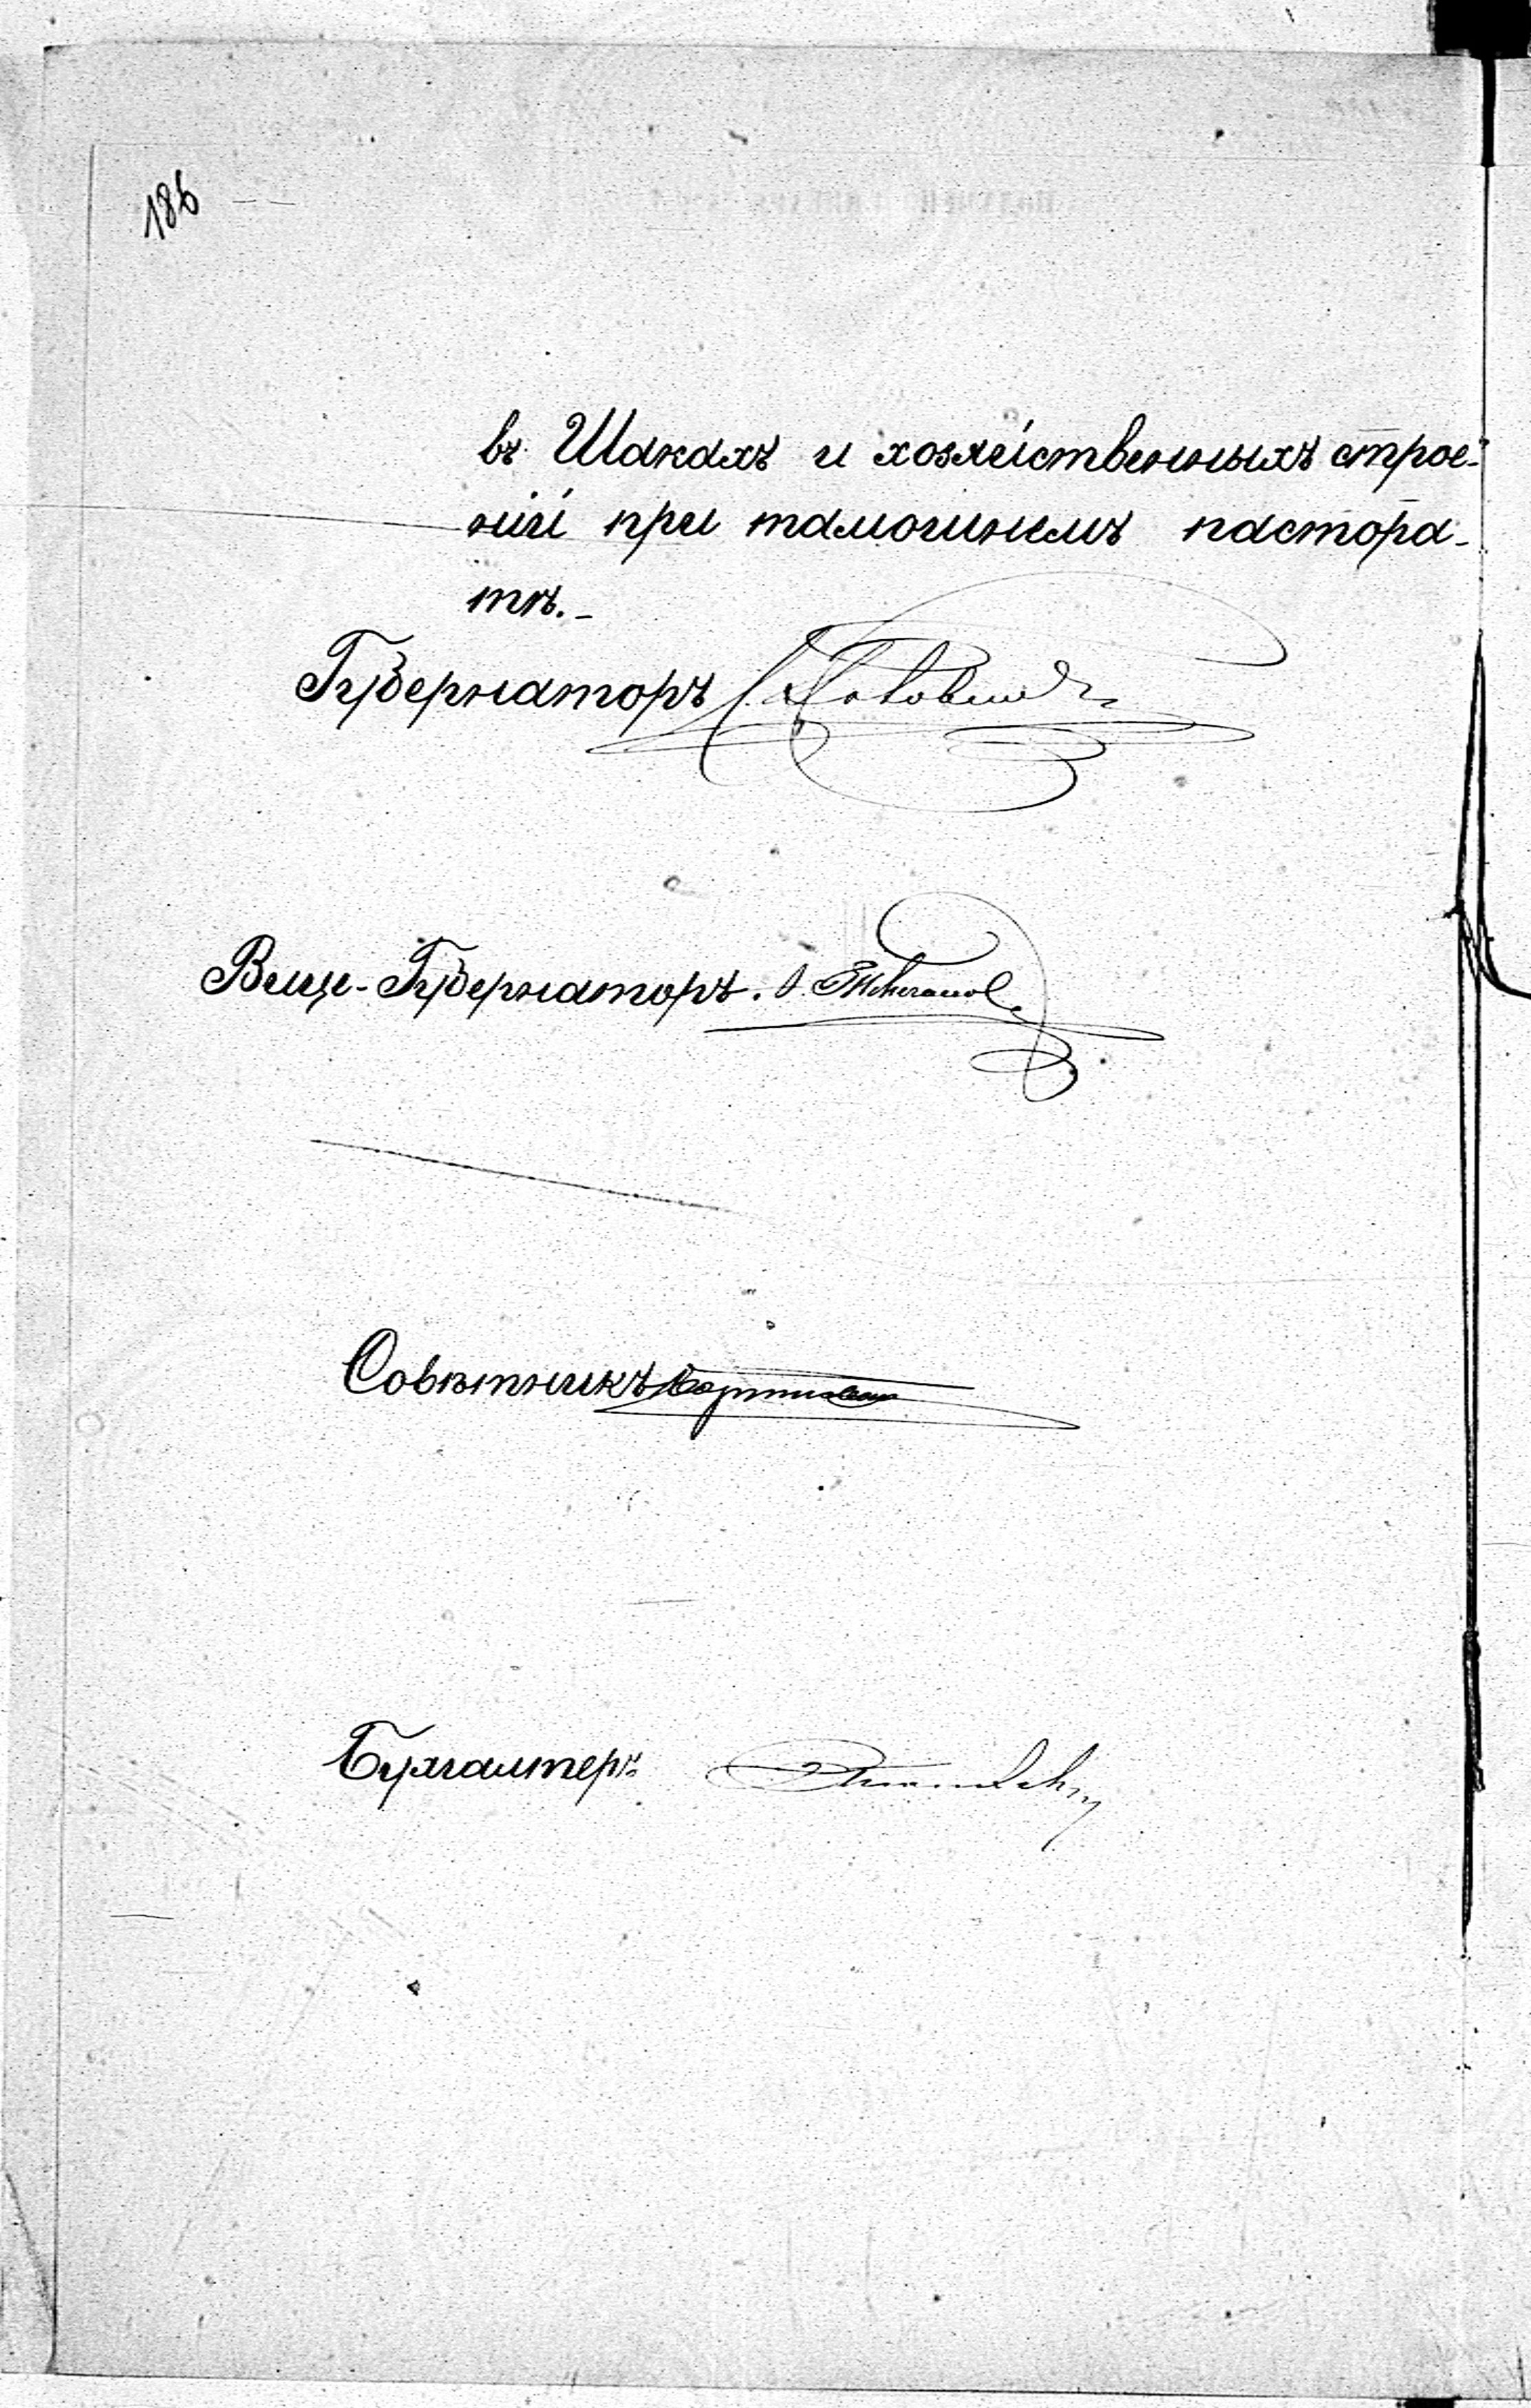 186
въ Шакахъ и хозяйственныхъ строе-
ній при тамошнемъ пастора-
тѣ.-
Губернаторъ
Вице-Губернаторъ.
Совѣтникъ
Бухгалтеръ